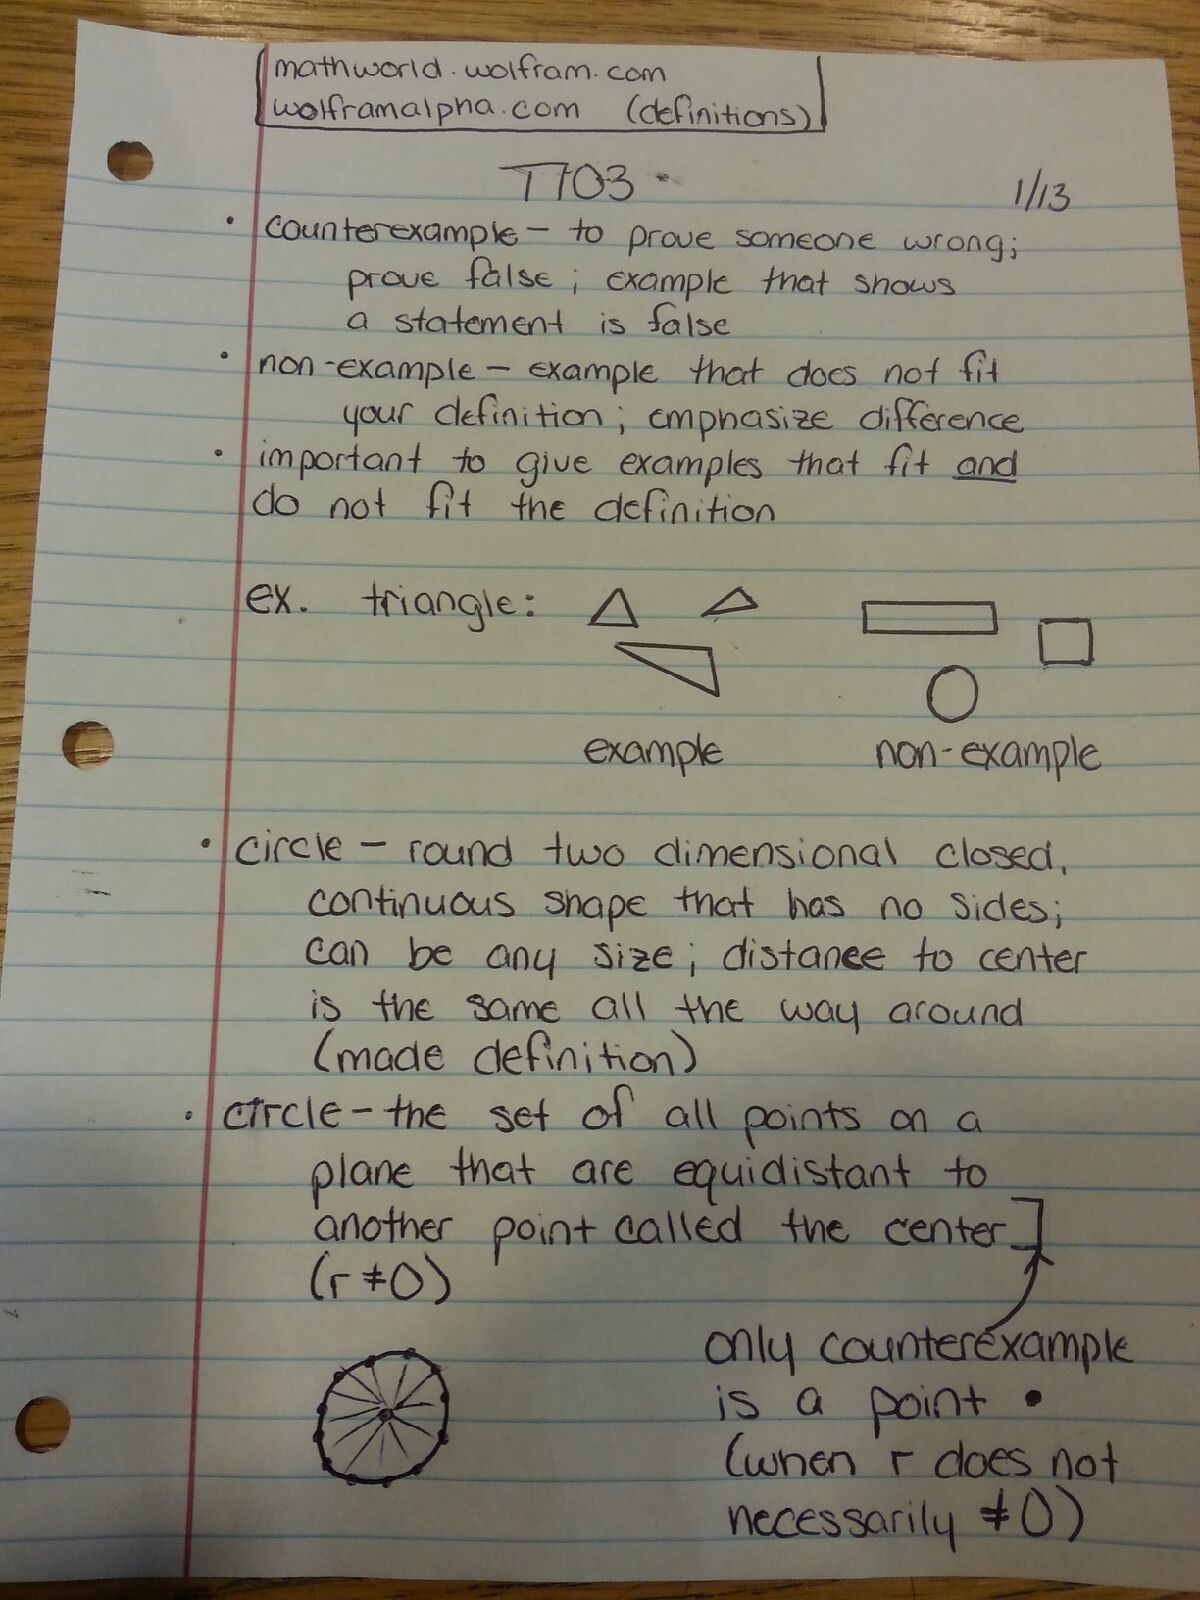 mathworld.wolfram.com
wolframalpha.com (definitions)
T103
1/13
• counterexample - to prove someone wrong;
prove false; example that shows
a statement is false
• non-example - example that does not fit
your definition; emphasize difference
• important to give examples that fit and
do not fit the definition
ex. triangle:
example non-example
• circle - round two dimensional closed,
continuous shape that has no sides;
can be any size; distance to center
is the same all the way around
(made definition)
• circle - the set of all points on a
plane that are equidistant to
another point called the center]
(r ≠ 0)
only counterexample
is a point •
(when r does not
necessarily ≠ 0)